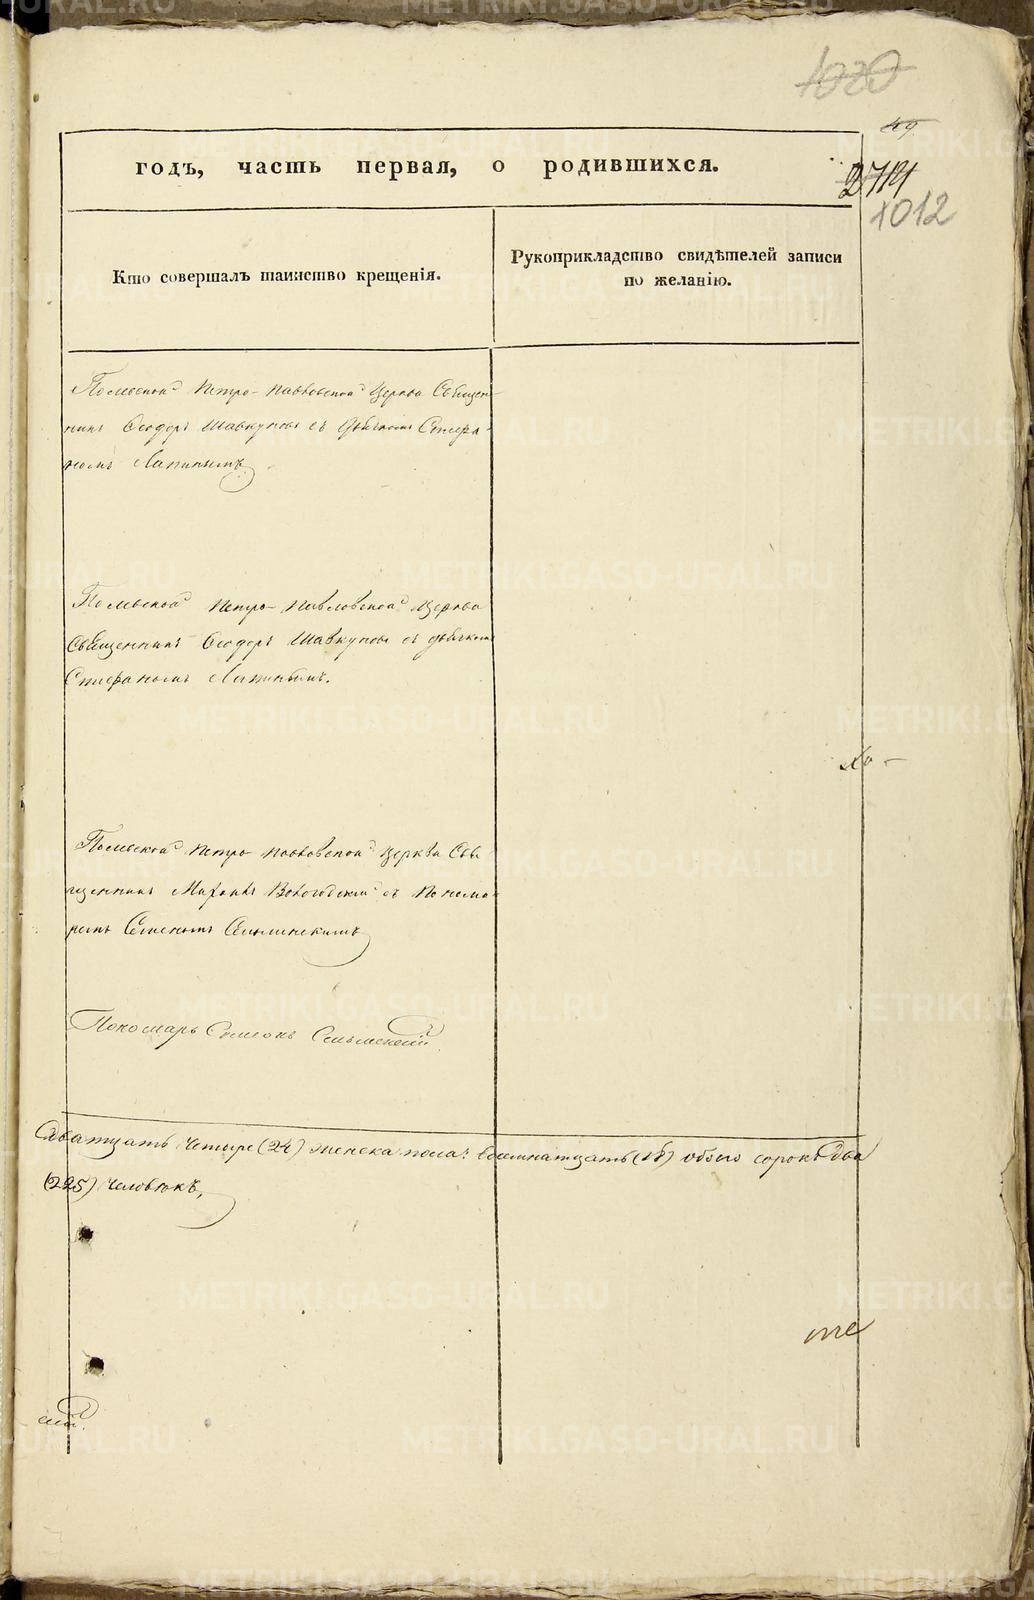 1020
49
годъ, часть первая, о родившихся.
2714
1012
Кто совершалъ таинство крещенія.
Рукоприкладство свидѣтелей записи
по желанію.
Полевской Петро-Павловской Церкви Священ-
никъ Ѳеодоръ Шавкуновъ съ Дьячкомъ Стефа-
номъ Лапинымъ
Полевской Петро-Павловской Церкви
Священникъ Ѳеодоръ Шавкуновъ съ дьячкомъ
Стефаномъ Лапинымъ.
Полевской Петро-Павловской Церкви Свя-
щенникъ Вологодскій съ Понома-
ремъ Семеномъ
Пономарь
Дватцать четыре (24) женска пола: восемнатцать (18) обоего сорокъ два
(225) человѣкъ,